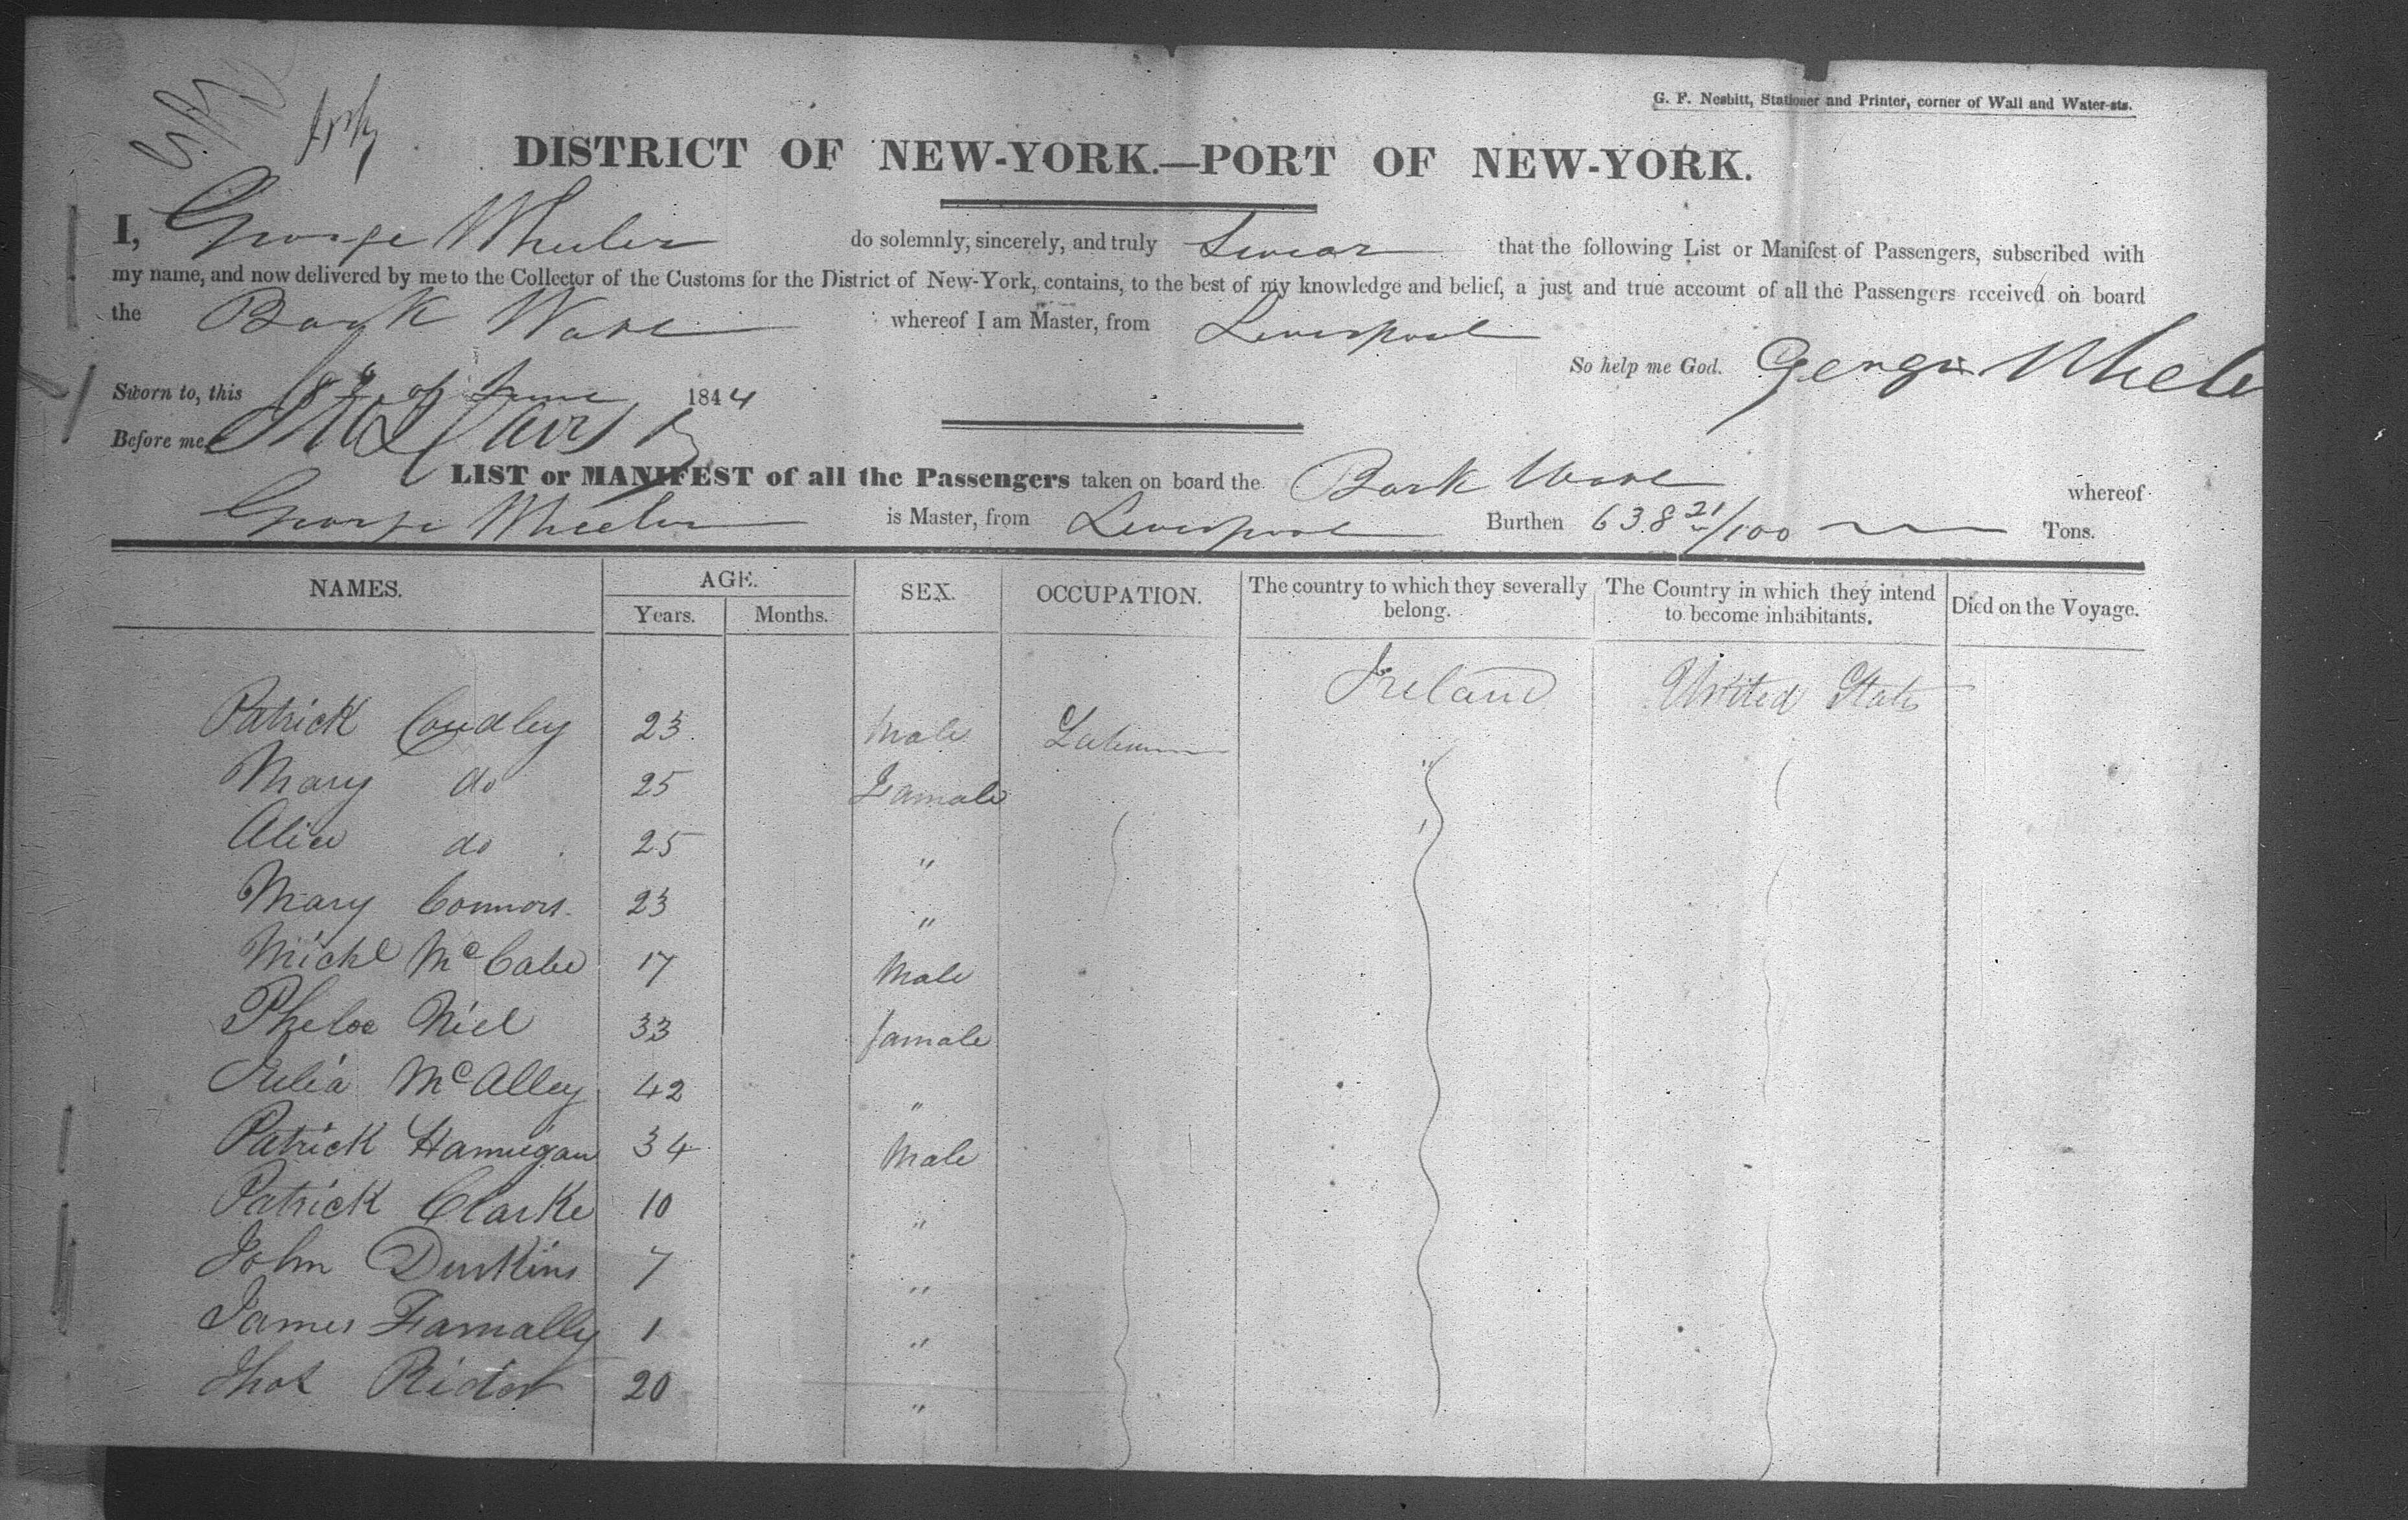 G. F. Nesbitt, Stationer and Printer, corner of Wall and Water-sts.
DISTRICT OF NEW-YORK.—PORT OF NEW-YORK.
I, George Wheeler do solemnly, sincerely, and truly Swear that the following List or Manifest of Passengers, subscribed with
my name, and now delivered by me to the Collector of the Customs for the District of New-York, contains, to the best of my knowledge and belief, a just and true account of all the Passengers received on board
the Bark whereof I am Master, from Liverpool
So help me God. George Wheele
Sworn to, this of June 1844
Before me
LIST or MANIFEST of all the Passengers taken on board the Bark whereof
George Wheeler is Master, from Liverpool Burthen 638 21/100 Tons.
NAMES. AGE. Years. Months. SEX. OCCUPATION. The country to which they severally belong. The Country in which they intend to become inhabitants. Died on the Voyage.
Ireland United States
Patrick Coudley 23 Male
Mary do 25 Famale
Alice do 25 "
Mary Connors 23 "
Michl McCabe 17 Male
Niel 33 famale
Julia McAlley 42 "
Patrick Hannigan 34 Male
Patrick Clarke 10 "
John Durkins 7 "
James Farnally 1 "
Thos 20 "